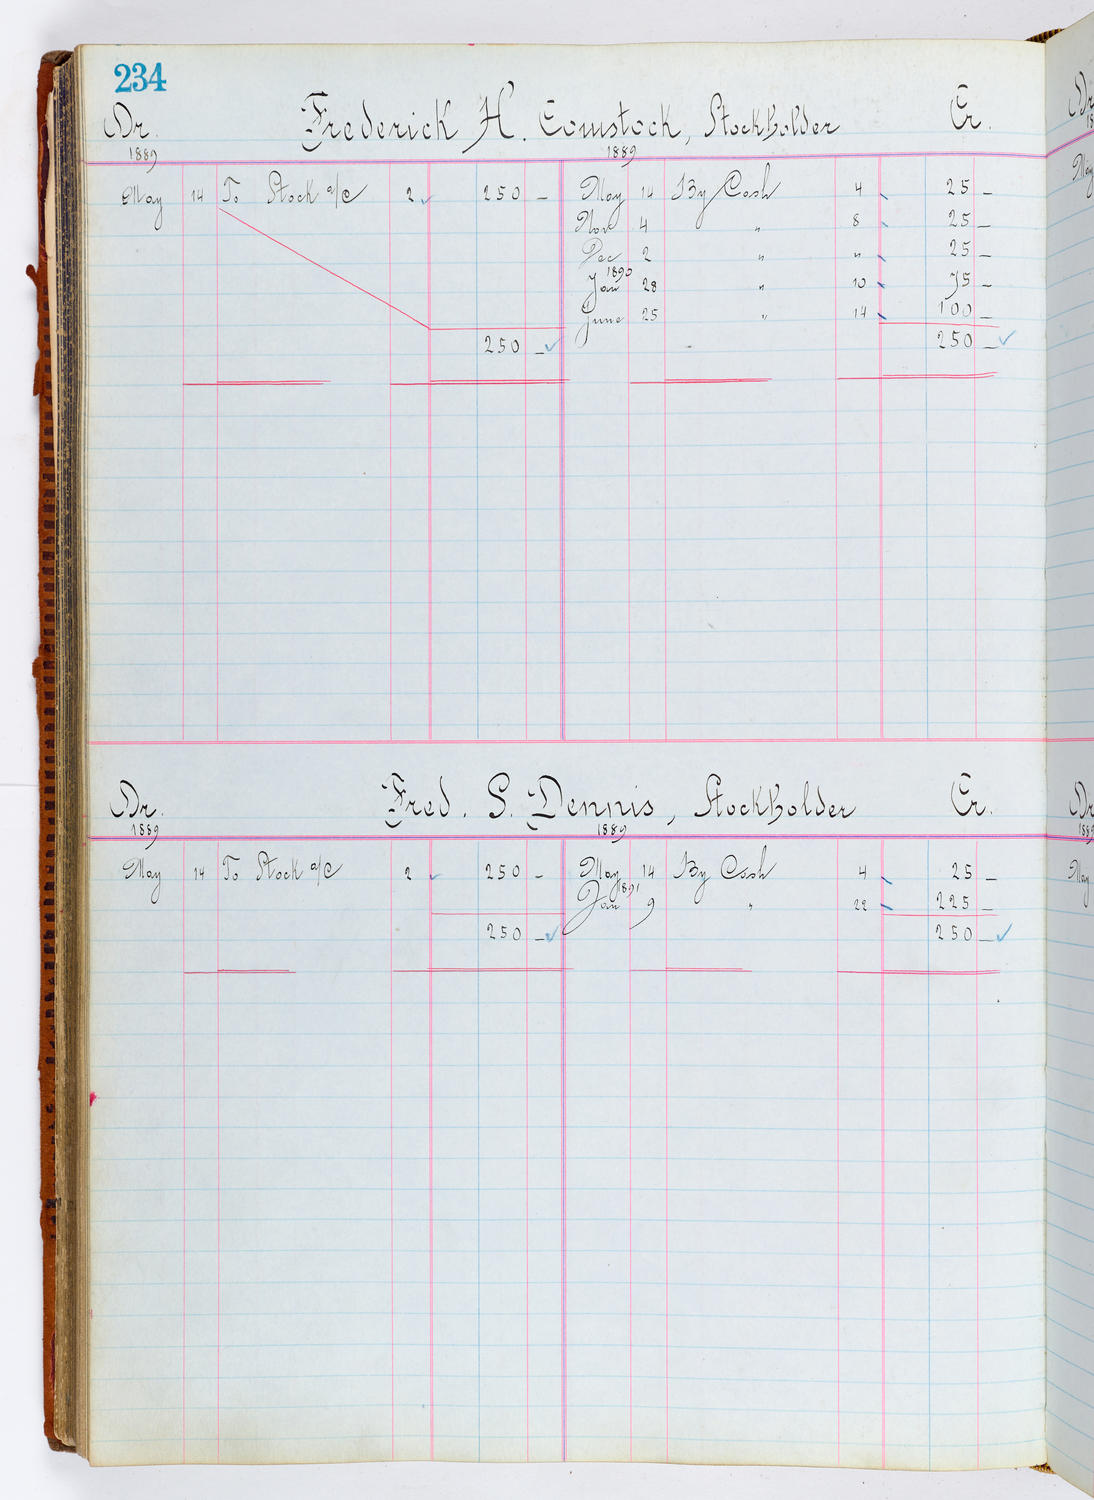 234
Dr. Frederick H. Comstock, Stockholder Cr.
1889 1889
May 14 To Stock a/c 2 250 – May 14 By Cash 4 25 –
Nov 4 " 8 25 –
Dec 2 " " 25 –
1890
Jan 28 " 10 75 –
June 25 " 14 100 –
250 – 250 –
Dr. Fred. S. Dennis, Stockholder Cr.
1889 1889
May 14 To Stock a/c 2 250 – May 14 By Cash 4 25 –
1891
Jan 9 " 22 225 –
250 – 250 –
Dr
May
Dr
1889
May